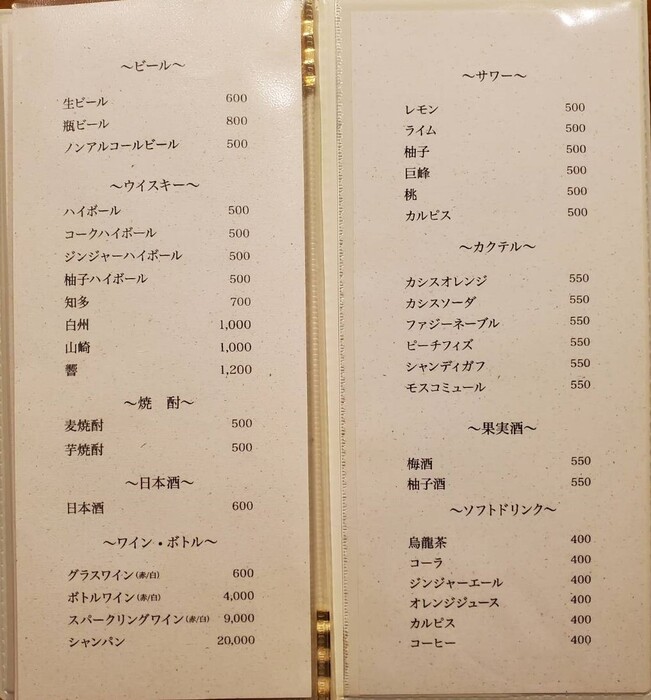 ～ビール～
生ビール 600
瓶ビール 800
ノンアルコールビール 500
～ウイスキー～
ハイボール 500
コークハイボール 500
ジンジャーハイボール 500
柚子ハイボール 500
知多 700
白州 1,000
山崎 1,000
響 1,200
～焼　酎～
麦焼酎 500
芋焼酎 500
～日本酒～
日本酒 600
～ワイン・ボトル～
グラスワイン(赤/白) 600
ボトルワイン(赤/白) 4,000
スパークリングワイン(赤/白) 9,000
シャンパン 20,000
～サワー～
レモン 500
ライム 500
柚子 500
巨峰 500
桃 500
カルピス 500
～カクテル～
カシスオレンジ 550
カシスソーダ 550
ファジーネーブル 550
ピーチフィズ 550
シャンディガフ 550
モスコミュール 550
～果実酒～
梅酒 550
柚子酒 550
～ソフトドリンク～
烏龍茶 400
コーラ 400
ジンジャーエール 400
オレンジジュース 400
カルピス 400
コーヒー 400